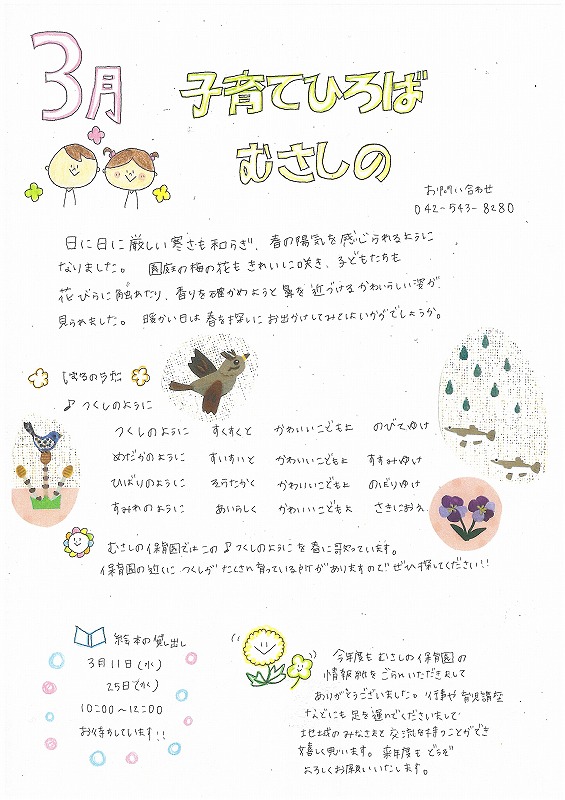 3月
子育てひろば
むさしの
お問い合わせ
042-543-8280
日に日に厳しい寒さも和らぎ、春の陽気を感じられるように
なりました。 園庭の梅の花も きれいに咲き、子どもたちも
花びらに触れたり、香りを確かめようと 鼻を近づける かわいらしい姿が
見られました。 暖かい日は 春を探しに お出かけしてみてはいかがでしょうか。
はるのうた
♪ つくしのように
つくしのように すくすくと かわいいこどもよ のびてゆけ
めだかのように すいすいと かわいいこどもよ すすみゆけ
ひばりのように ろうたかく かわいいこどもよ のぼりゆけ
すみれのように あいらしく かわいいこどもよ さきにおえ
むさしの保育園ではこの♪つくしのようにを春に歌っています。
保育園の近くに つくしが たくさん育っている所がありますので ぜひ探してください!!
絵本の貸し出し
3月11日(水)
25日(水)
10:00〜12:00
お待ちしています!!
今年度も むさしの保育園の
情報紙を ごらんいただきまして
ありがとうございました。行事や 育児講座
などにも 足を運んでくださいまして
地域のみなさまと 交流を持つことができ
嬉しく思います。来年度も どうぞ
よろしくお願いいたします。